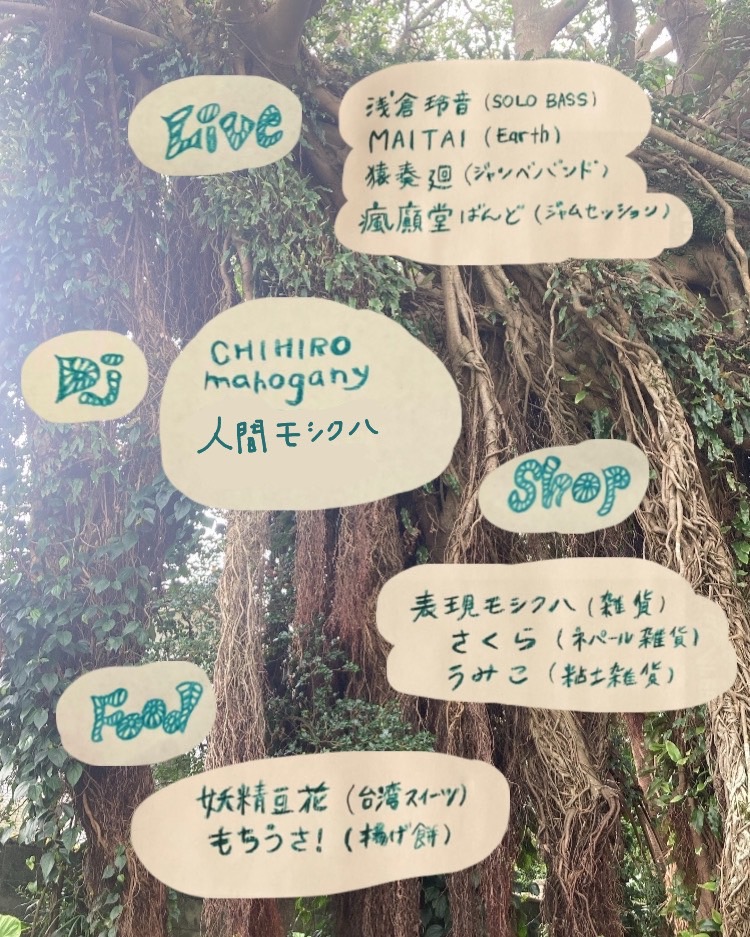 Live
浅倉玲音 (SOLO BASS)
MAITAI (Earth)
猿奏廻 (ジャンベバンド)
瘋癲堂ばんど (ジャムセッション)
Dj
CHIHIRO
mahogany
人間モシクハ
Shop
表現モシクハ (雑貨)
さくら (ネパール雑貨)
うみこ (粘土雑貨)
Food
妖精豆花 (台湾スイーツ)
もちうさ! (揚げ餅)